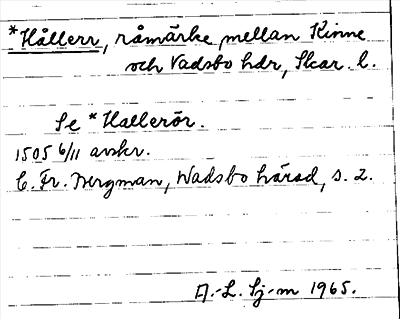 *Hållerr, råmärke mellan Kinne
och Vadsbo hdr, Skar. l.
Se *Hallerör.
1505 6/11 avskr.
C. Fr. Bergman, Wadsbo härad, s. 2.
A.-L. Sj-m 1965.